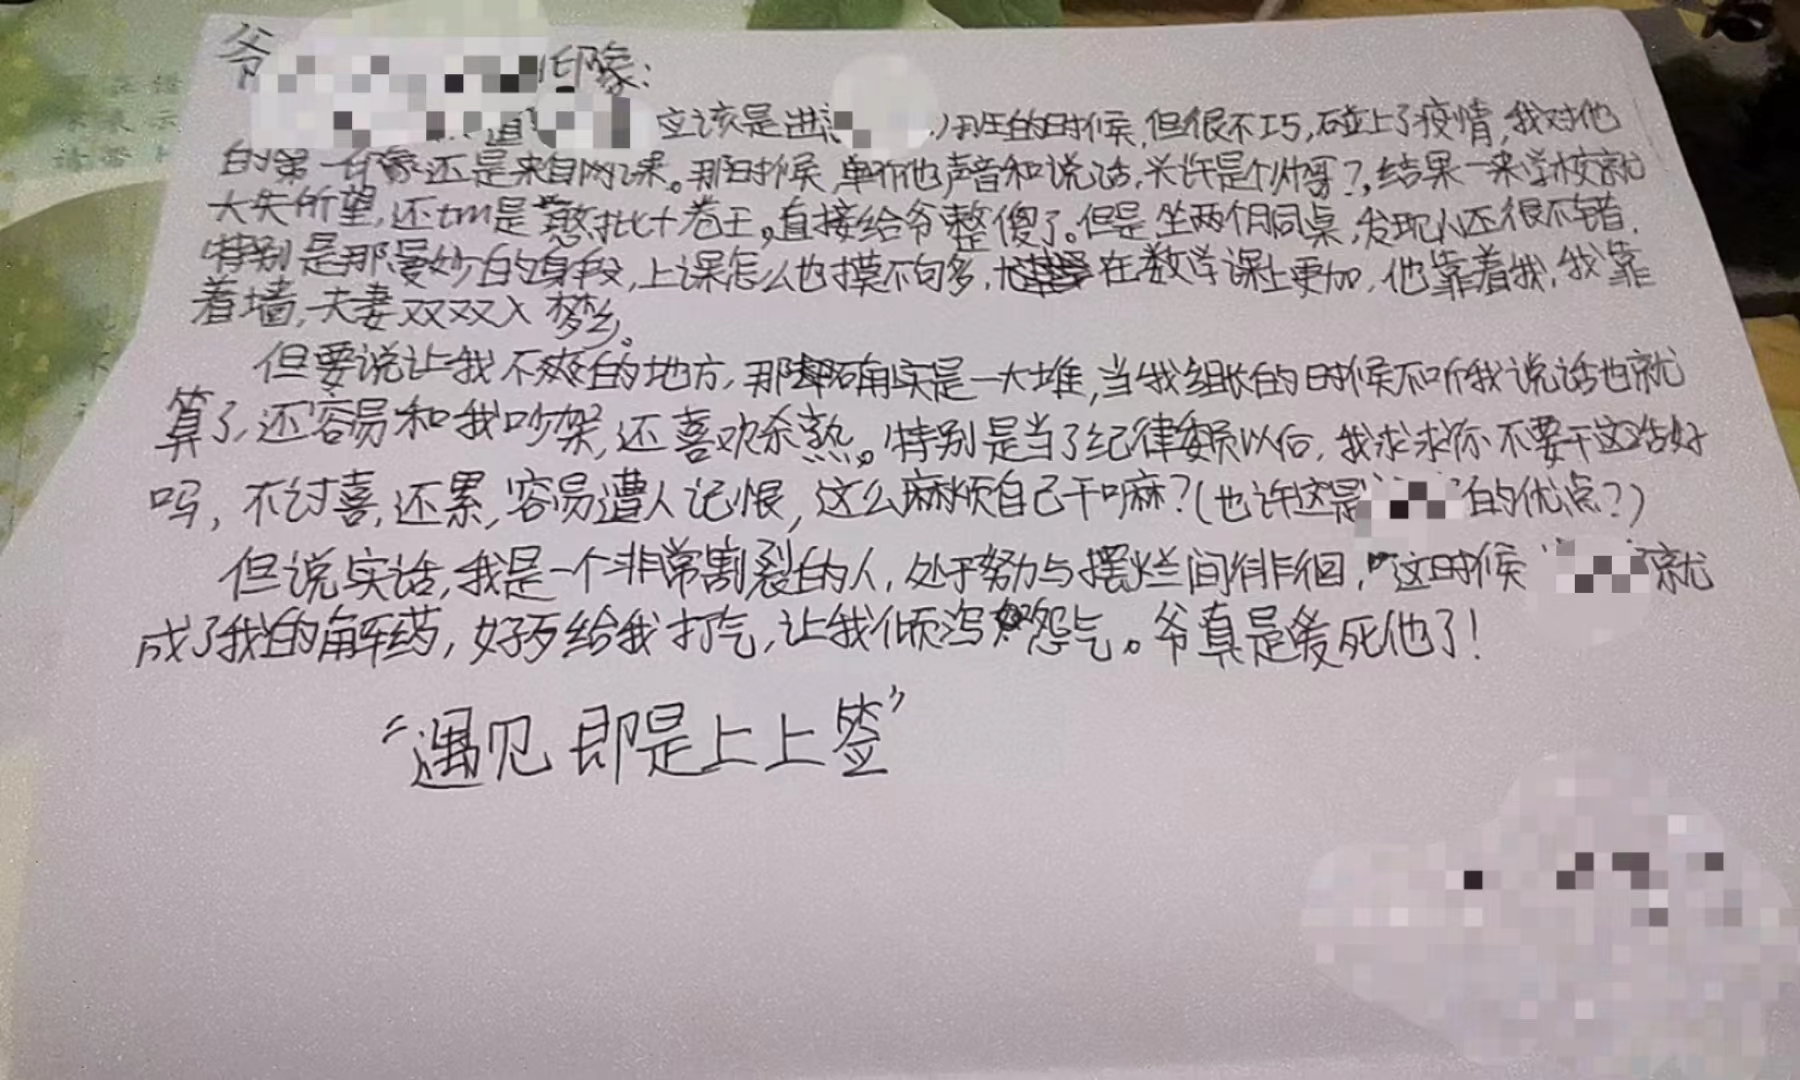 爷印象：
道 应该是进 班的时候，但很不巧，碰上了疫情，我对他
的第一印象还是来自网课。那时候，单听他声音和说话，兴许是个帅哥？，结果一来学校就
大失所望，还tm是憨批+卷王。直接给爷整傻了。但是坐两个月同桌，发现小还很不错，
特别是那曼妙的身段，上课怎么也摸不够，尤在数学课上更加，他靠着我，我靠
着墙，夫妻双双入梦乡。
但要说让我不爽的地方，那确实是一大堆，当我组长的时候不听我说话也就
算了，还容易和我吵架，还喜欢杀熟。特别是当了纪律委员以后，我求求你不要干这活好
吗，不讨喜，还累，容易遭人记恨，这么麻烦自己干嘛？（也许这是的优点？）
但说实话，我是一个非常割裂的人，处于努力与摆烂间徘徊，这时候就
成了我的解药，好歹给我打气，让我倾泻怨气。爷真是爱死他了！
“遇见即是上上签”